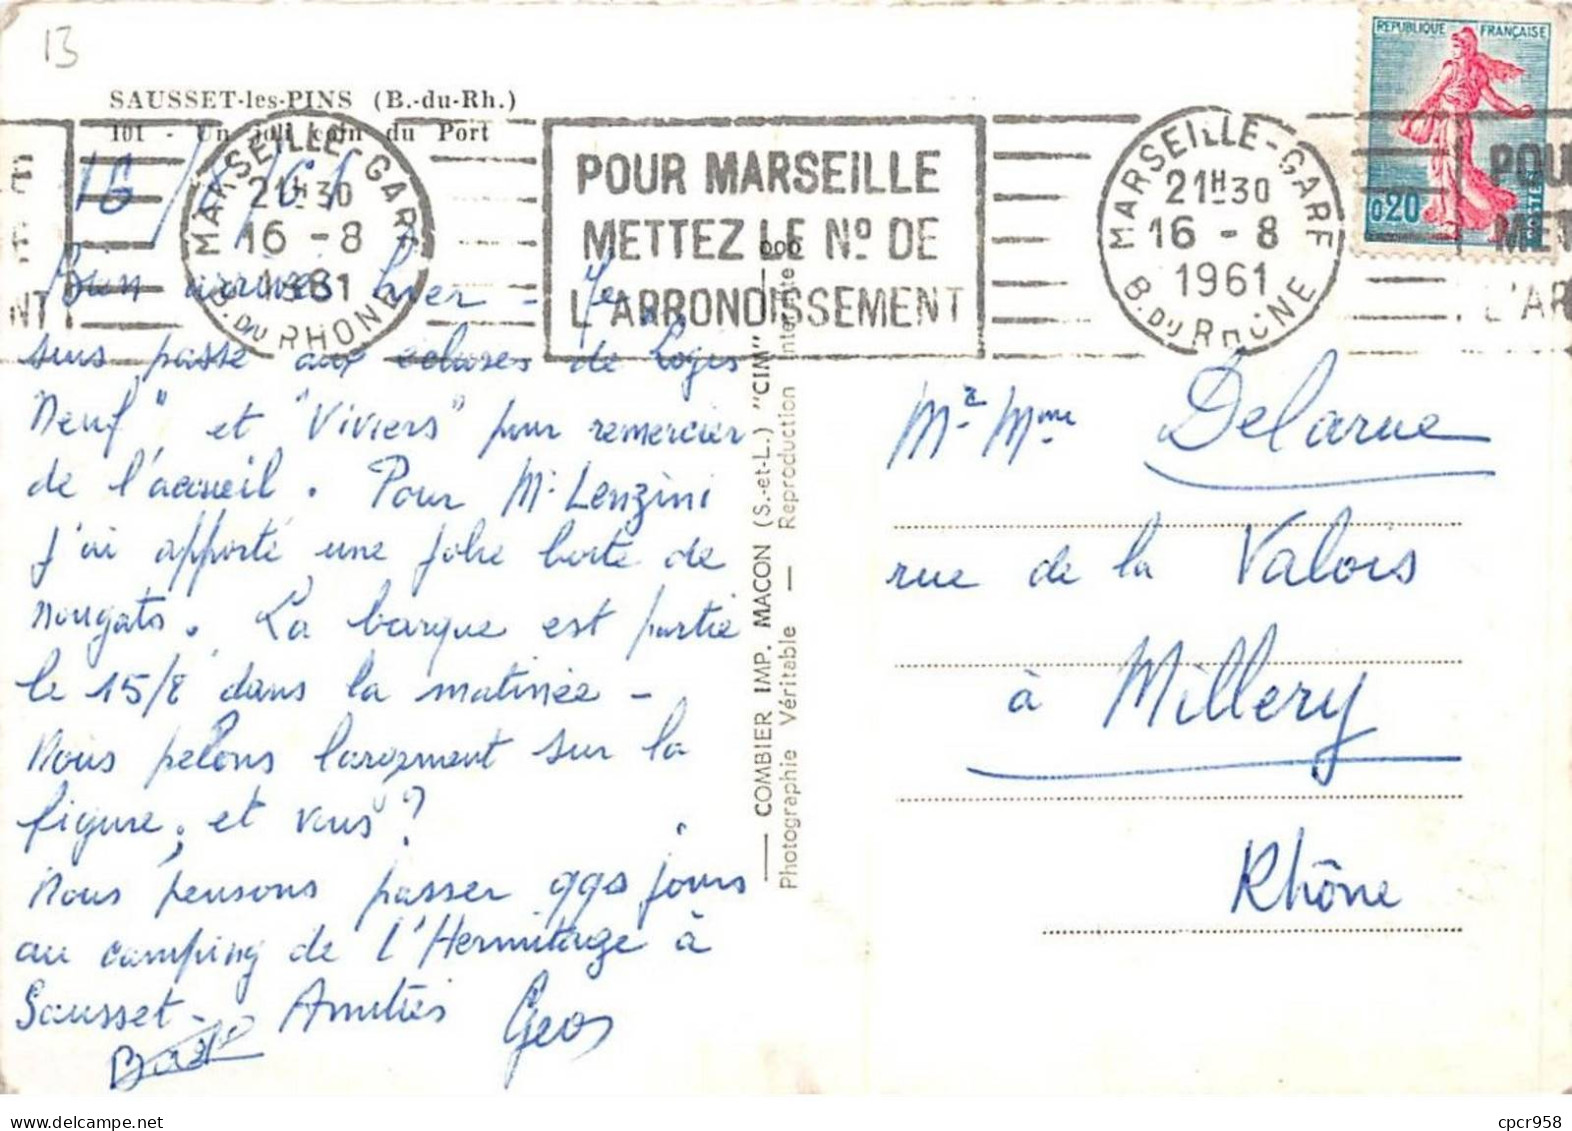 13
SAUSSET-les-PINS (B.-du-Rh.)
101 - Un joli coin du Port
16/8/61
MARSEILLE-GARE
21H30
16-8
1961
B. DU RHONE
POUR MARSEILLE
METTEZ LE No DE
L'ARRONDISSEMENT
MARSEILLE-GARE
21H30
16-8
1961
B. DU RHONE
REPUBLIQUE FRANÇAISE
0,20
POSTES
POU
MET
L'AR
Bien arrivés hier - Je
suis passé aux écluses de "Logis
Neuf" et "Viviers" pour remercier
de l'accueil. Pour Mr Lenzini
j'ai apporté une jolie boite de
nougats. La barque est partie
le 15/8 dans la matinée -
Nous pelons largement sur la
figure, et vous?
Nous pensons passer qqs jours
au camping de l'Hermitage à
Sausset - Amitiés Geos
COMBIER IMP. MACON (S.-et-L.) "CIM"
Photographie Véritable — Reproduction interdite
Mr & Mme Delarue
rue de la Valois
à Millery
Rhône
cpcr958